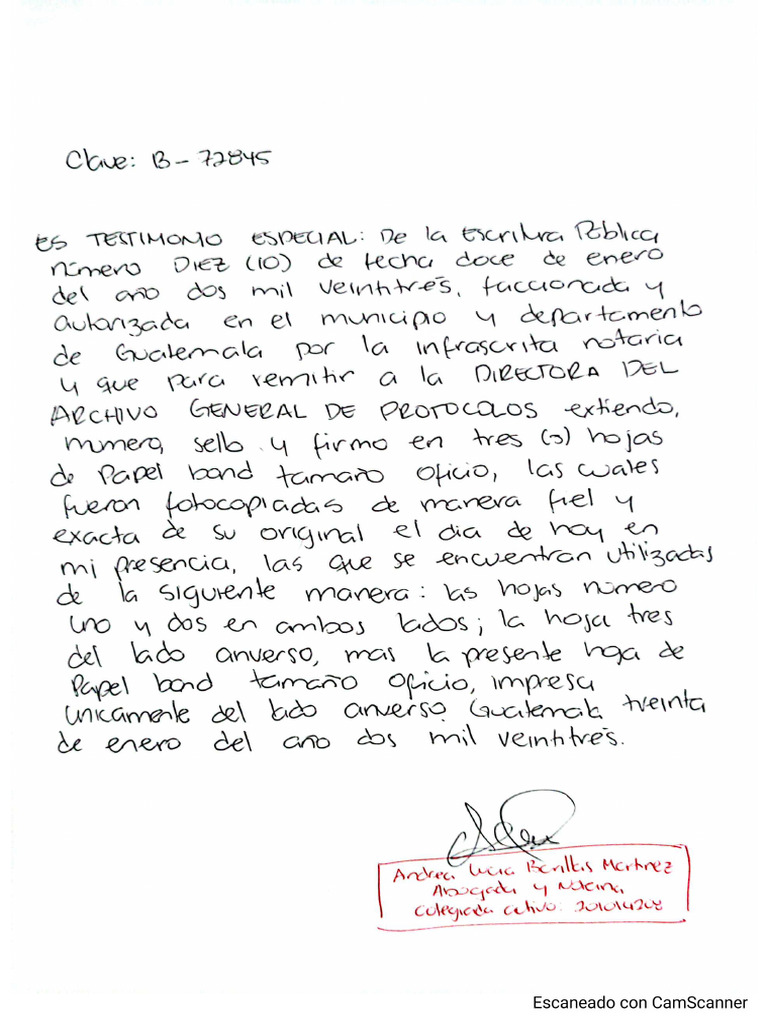 Clave: B-72845
ES TESTIMONIO ESPECIAL: De la Escritura Pública
número DIEZ (10) de fecha doce de enero
del año dos mil veintitrés, faccionada y
autorizada en el municipio y departamento
de Guatemala por la infrascrita notaria
y que para remitir a la DIRECTORA DEL
ARCHIVO GENERAL DE PROTOCOLOS extiendo,
numero, sello y firmo en tres (3) hojas
de Papel bond tamaño oficio, las cuales
fueron fotocopiadas de manera fiel y
exacta de su original el dia de hoy en
mi presencia, las que se encuentran utilizadas
de la siguiente manera: las hojas número
uno y dos en ambos lados; la hoja tres
del lado anverso, mas la presente hoja de
Papel bond tamaño oficio, impresa
únicamente del lado anverso. Guatemala, treinta
de enero del año dos mil veintitrés.
Andrea Lucia Martinez
Abogada y Notaria
Colegiada activo:
Escaneado con CamScanner